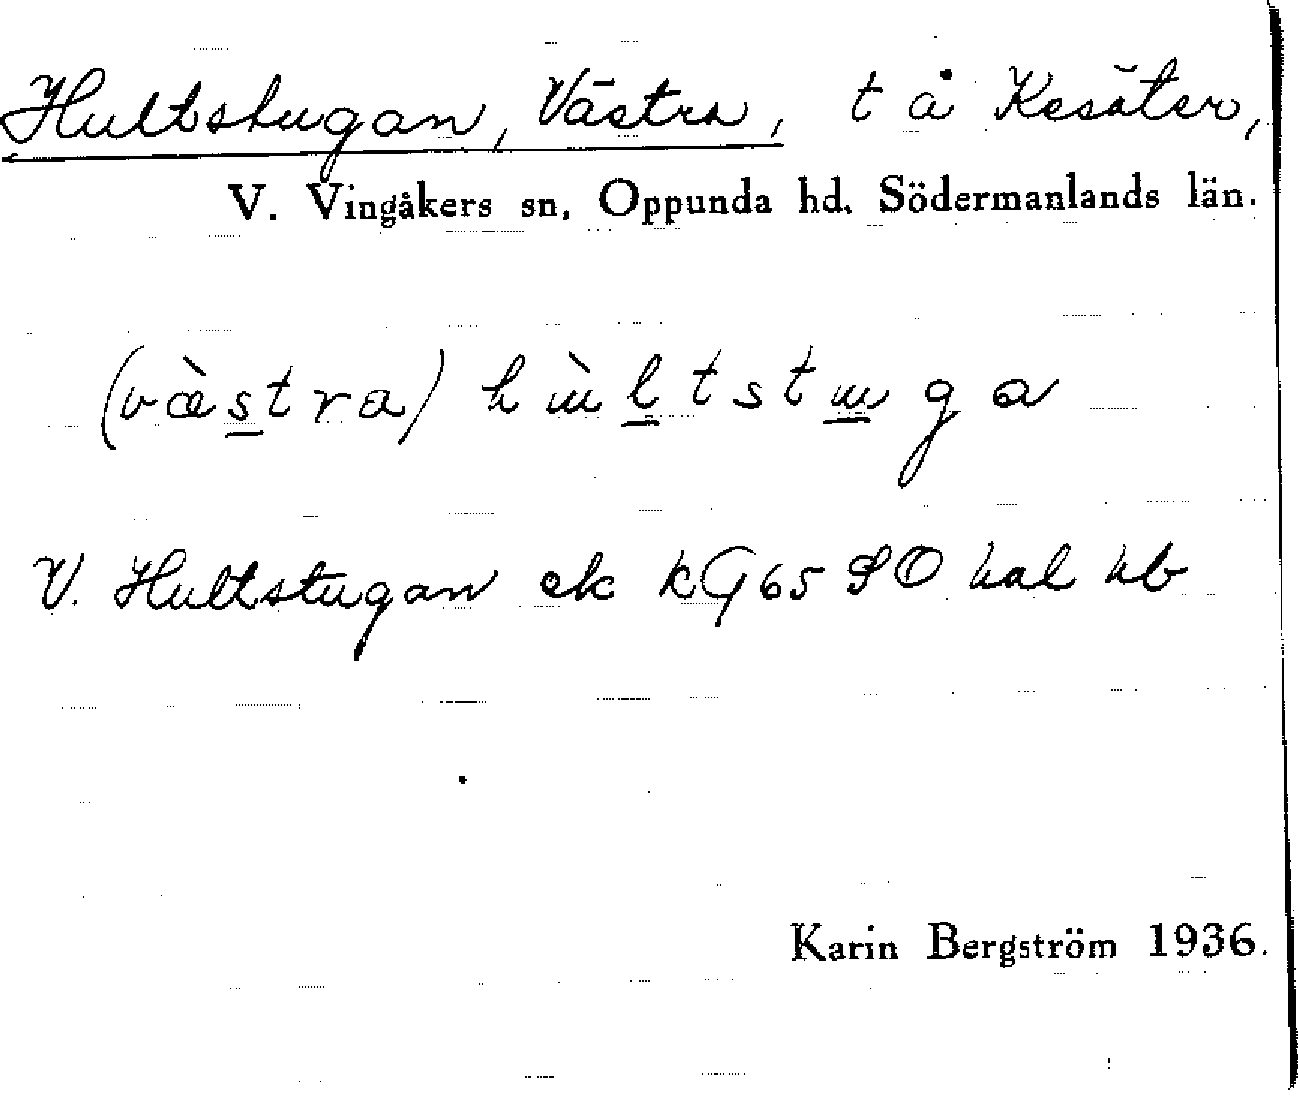 Hultstugan, Västra, t å Kesäter,
V. Vingåkers sn, Oppunda hd. Södermanlands län.
(væ̀stra) hùltstuga
V. Hultstugan ek kG65 SO kal hb
Karin Bergström 1936.